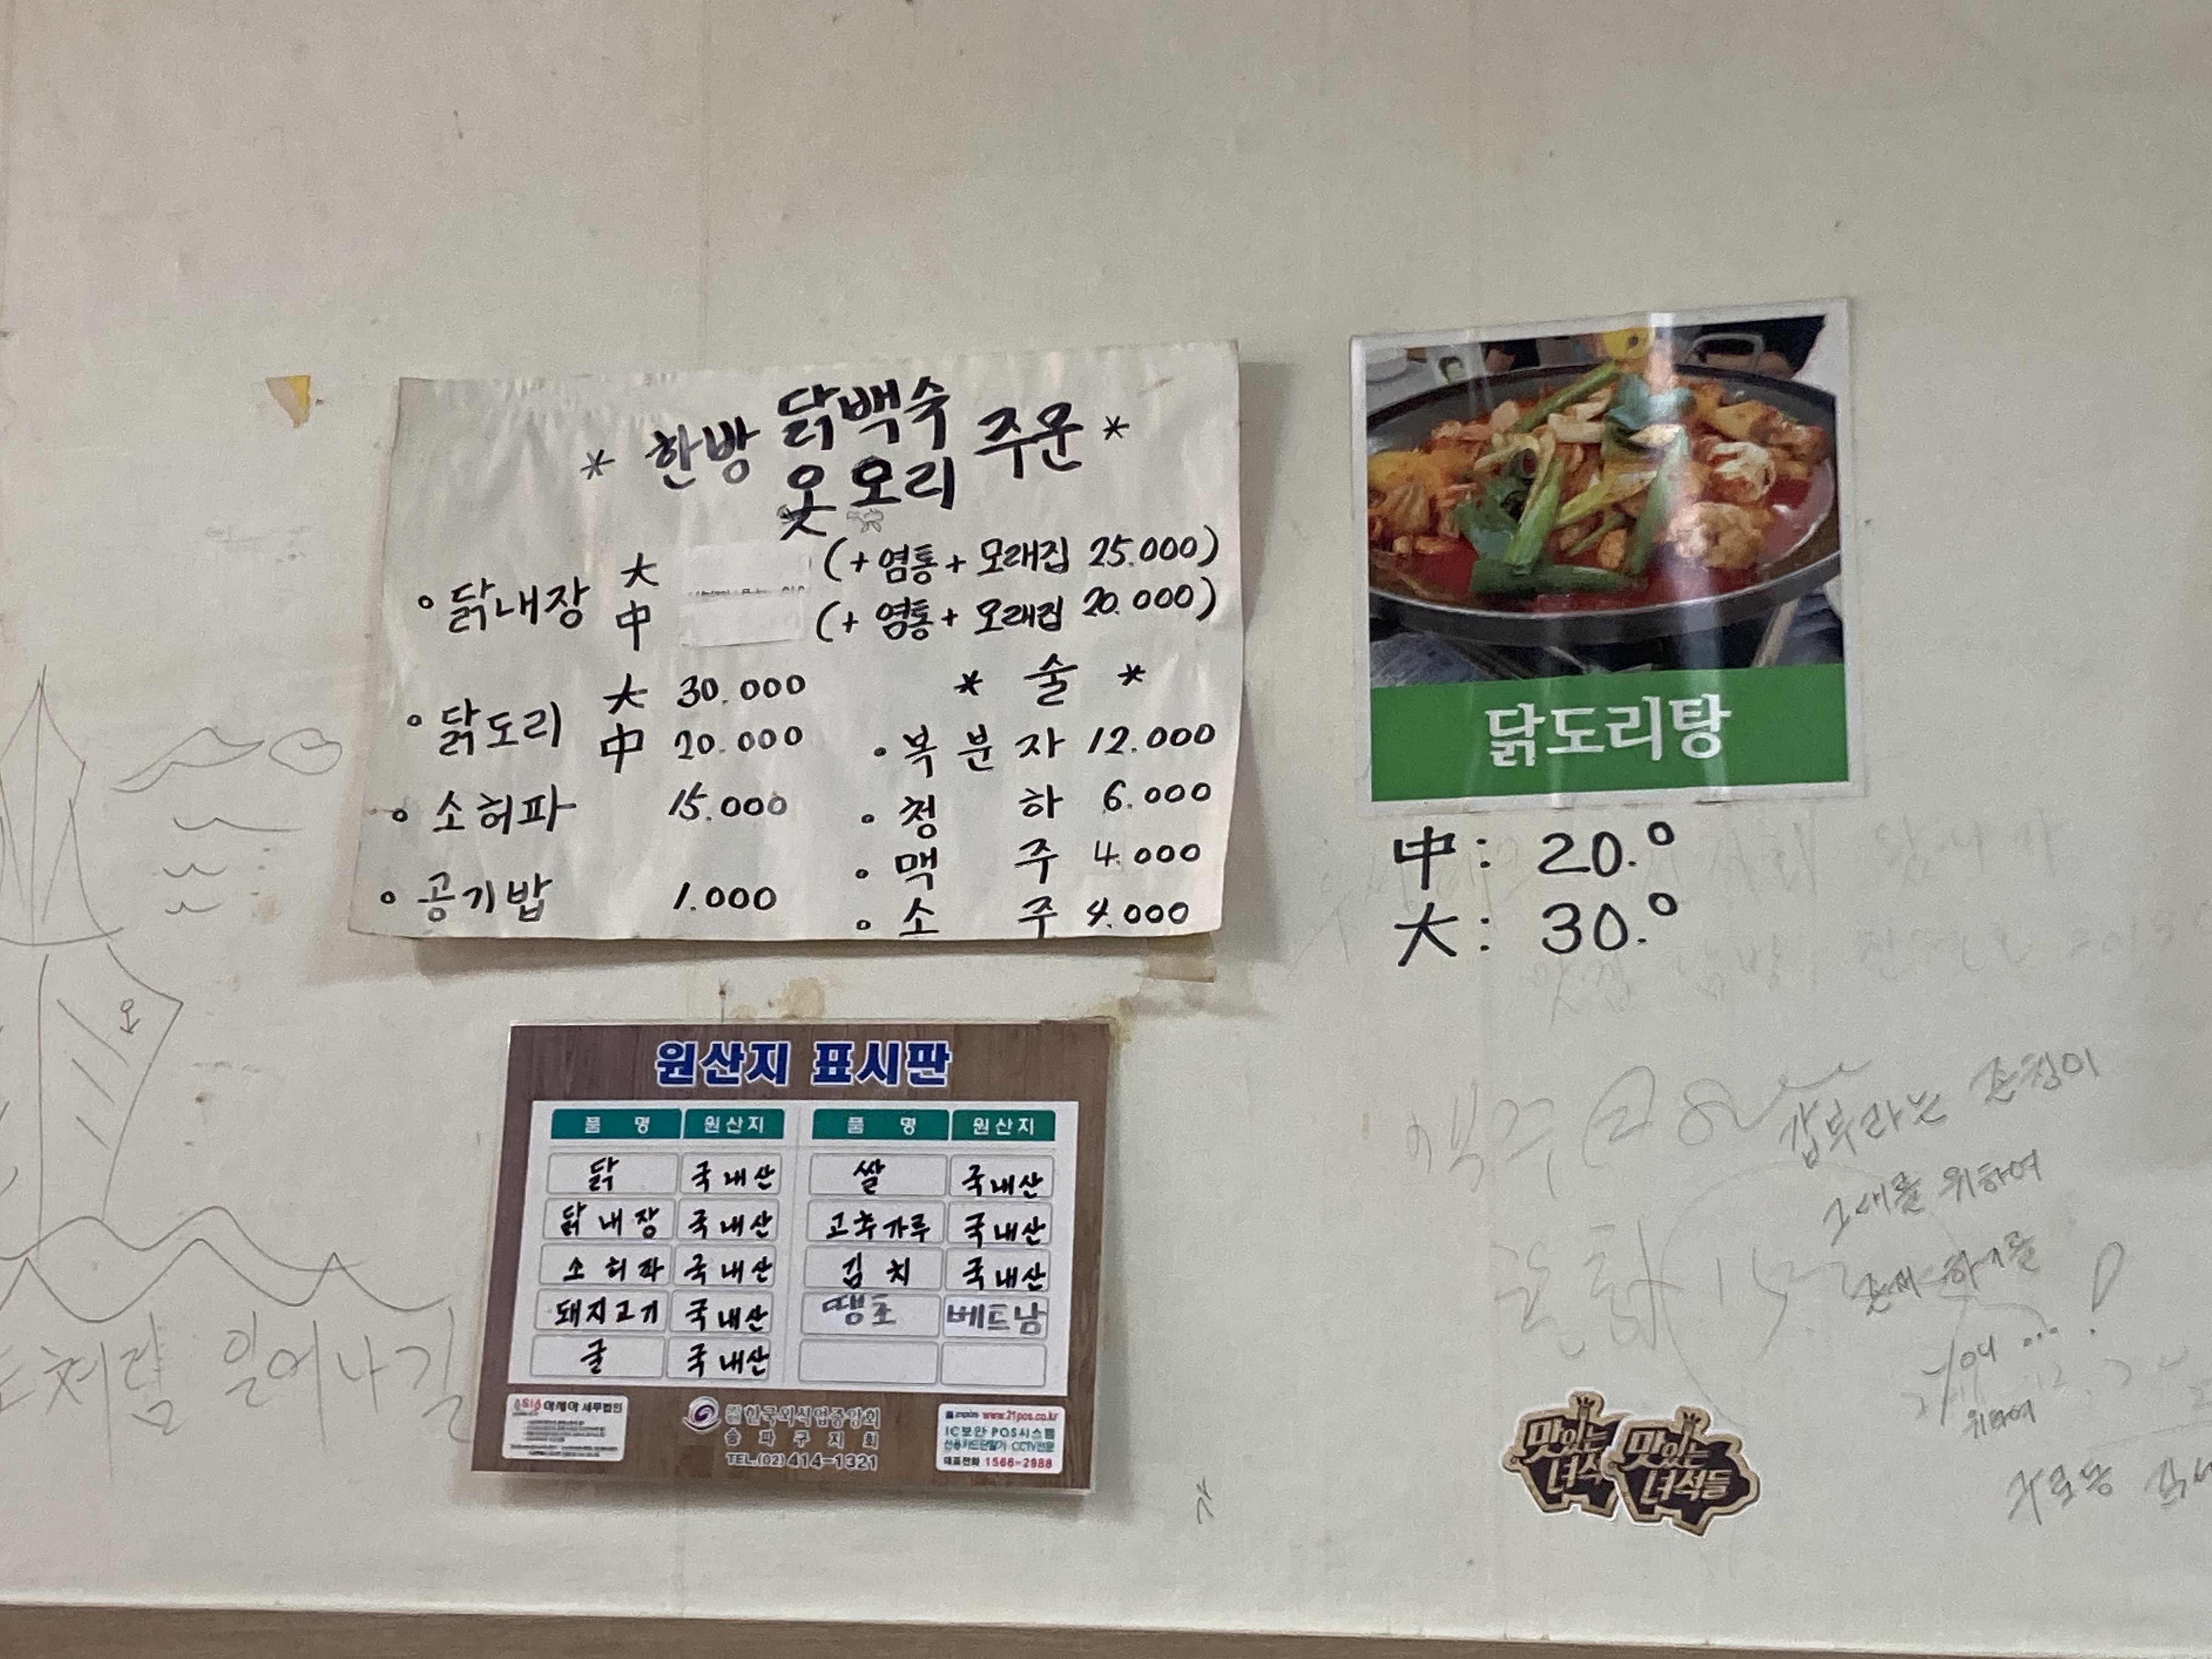 * 한방 닭백숙 주문 *
옻오리
• 닭내장 大 (+염통+모래집 25.000)
中 (+염통+모래집 20.000)
• 닭도리 大 30.000
中 20.000
• 소허파 15.000
• 공기밥 1.000
* 술 *
• 복분자 12.000
• 청하 6.000
• 맥주 4.000
• 소주 4.000
닭도리탕
中: 20.º
大: 30.º
원산지 표시판
품명 원산지 품명 원산지
닭 국내산 쌀 국내산
닭내장 국내산 고추가루 국내산
소허파 국내산 김치 국내산
돼지고기 국내산 땡초 베트남
굴 국내산
아세아 세무법인
한국외식업중앙회
송파구지회
TEL.(02)414-1321
www.21pos.co.kr
IC보안 POS시스템
신용카드단말기 CCTV전문
대표전화 1566-2988
처럼 일어나길
그대를 위하여
위하여
구로동
맛있는 녀석
맛있는 녀석들